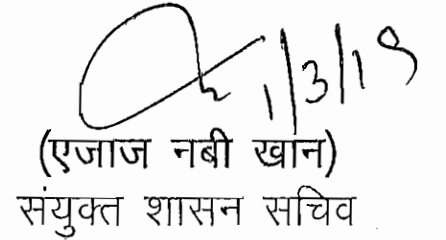 1/3/19
(एजाज नबी खान)
संयुक्त शासन सचिव